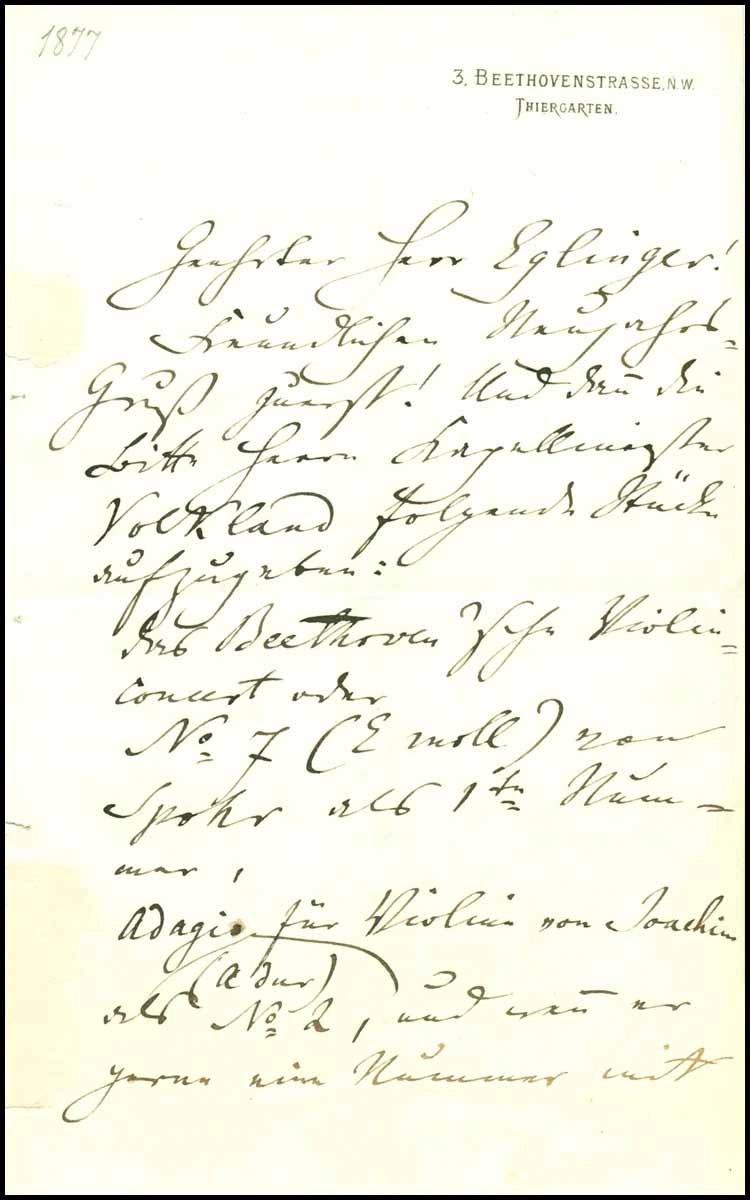 1877
3, BEETHOVENSTRASSE, N.W.
THIERGARTEN.
Geehrter Herr Eglinger!
Freundlichen Neujahrs=
Gruß zuerst! Und dan̄ die
Bitte Herrn Kapellmeister
Volkland folgende Stücke
aufzugeben:
das Beethoven'sche Violin=
concert oder
No 7 (E moll) von
Spohr als 1te Num=
mer,
Adagio für Violine von Joachim
(A dur)
als No 2, und wen̄ er
gerne eine Nummer mit